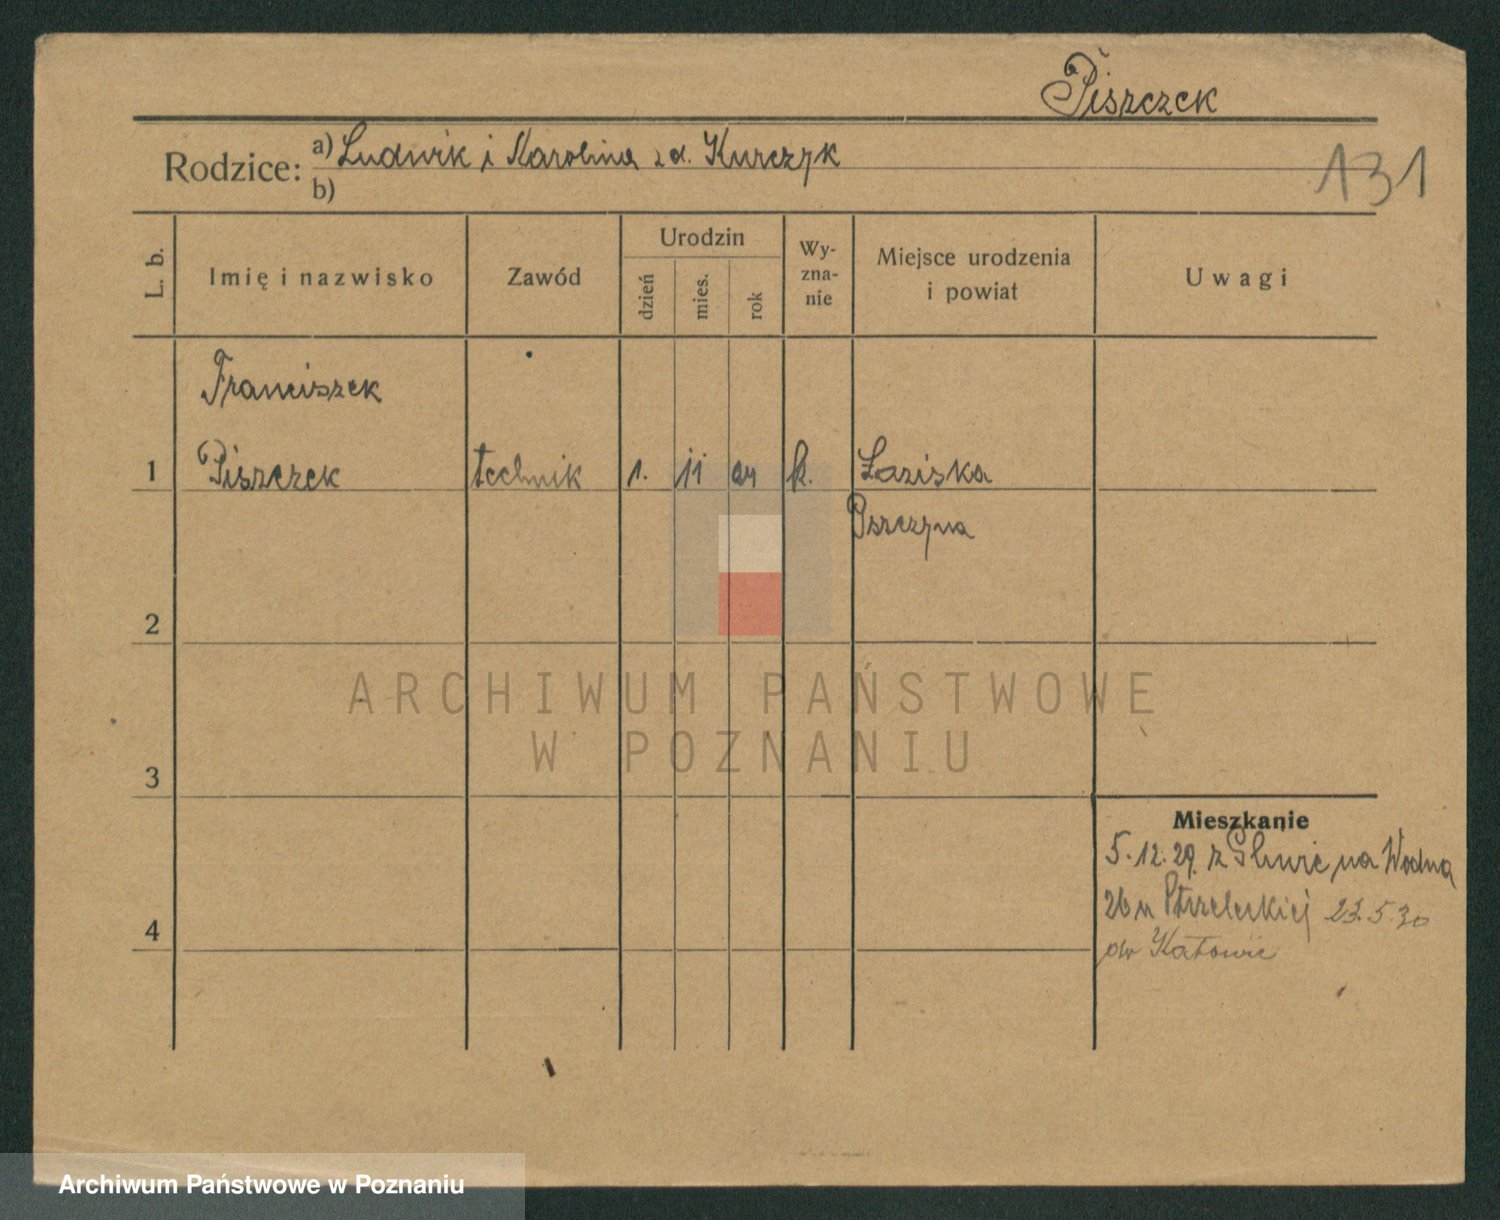 Piszczek
Rodzice: a) Ludwik i Karolina zd. Kurczyk
b)
131
L. b.
Imię i nazwisko
Zawód
Urodzin
dzień
mies.
rok
Wy-
zna-
nie
Miejsce urodzenia
i powiat
Uwagi
Franciszek
1 Piszczek technik 1. 11 04 k. Łaziska
Pszczyna
2
ARCHIWUM PAŃSTWOWE
W POZNANIU
3
Mieszkanie
5.12.29. z Gliwic na Wodna
4
26 u Strzeleckiej 23.5.30
do Katowic
Archiwum Państwowe w Poznaniu